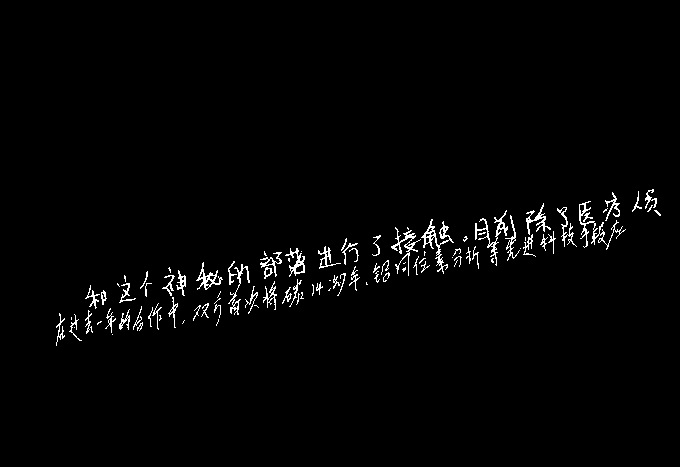 和这个神秘的部落进行了接触。目前除了医疗人员
在过去一年的合作中,双方首次将碳14测年、铝同位素分析等先进科技手段应